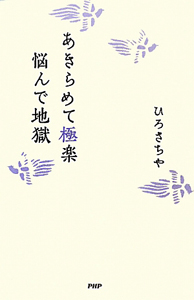 あきらめて極楽
悩んで地獄
ひろさちや
PHP